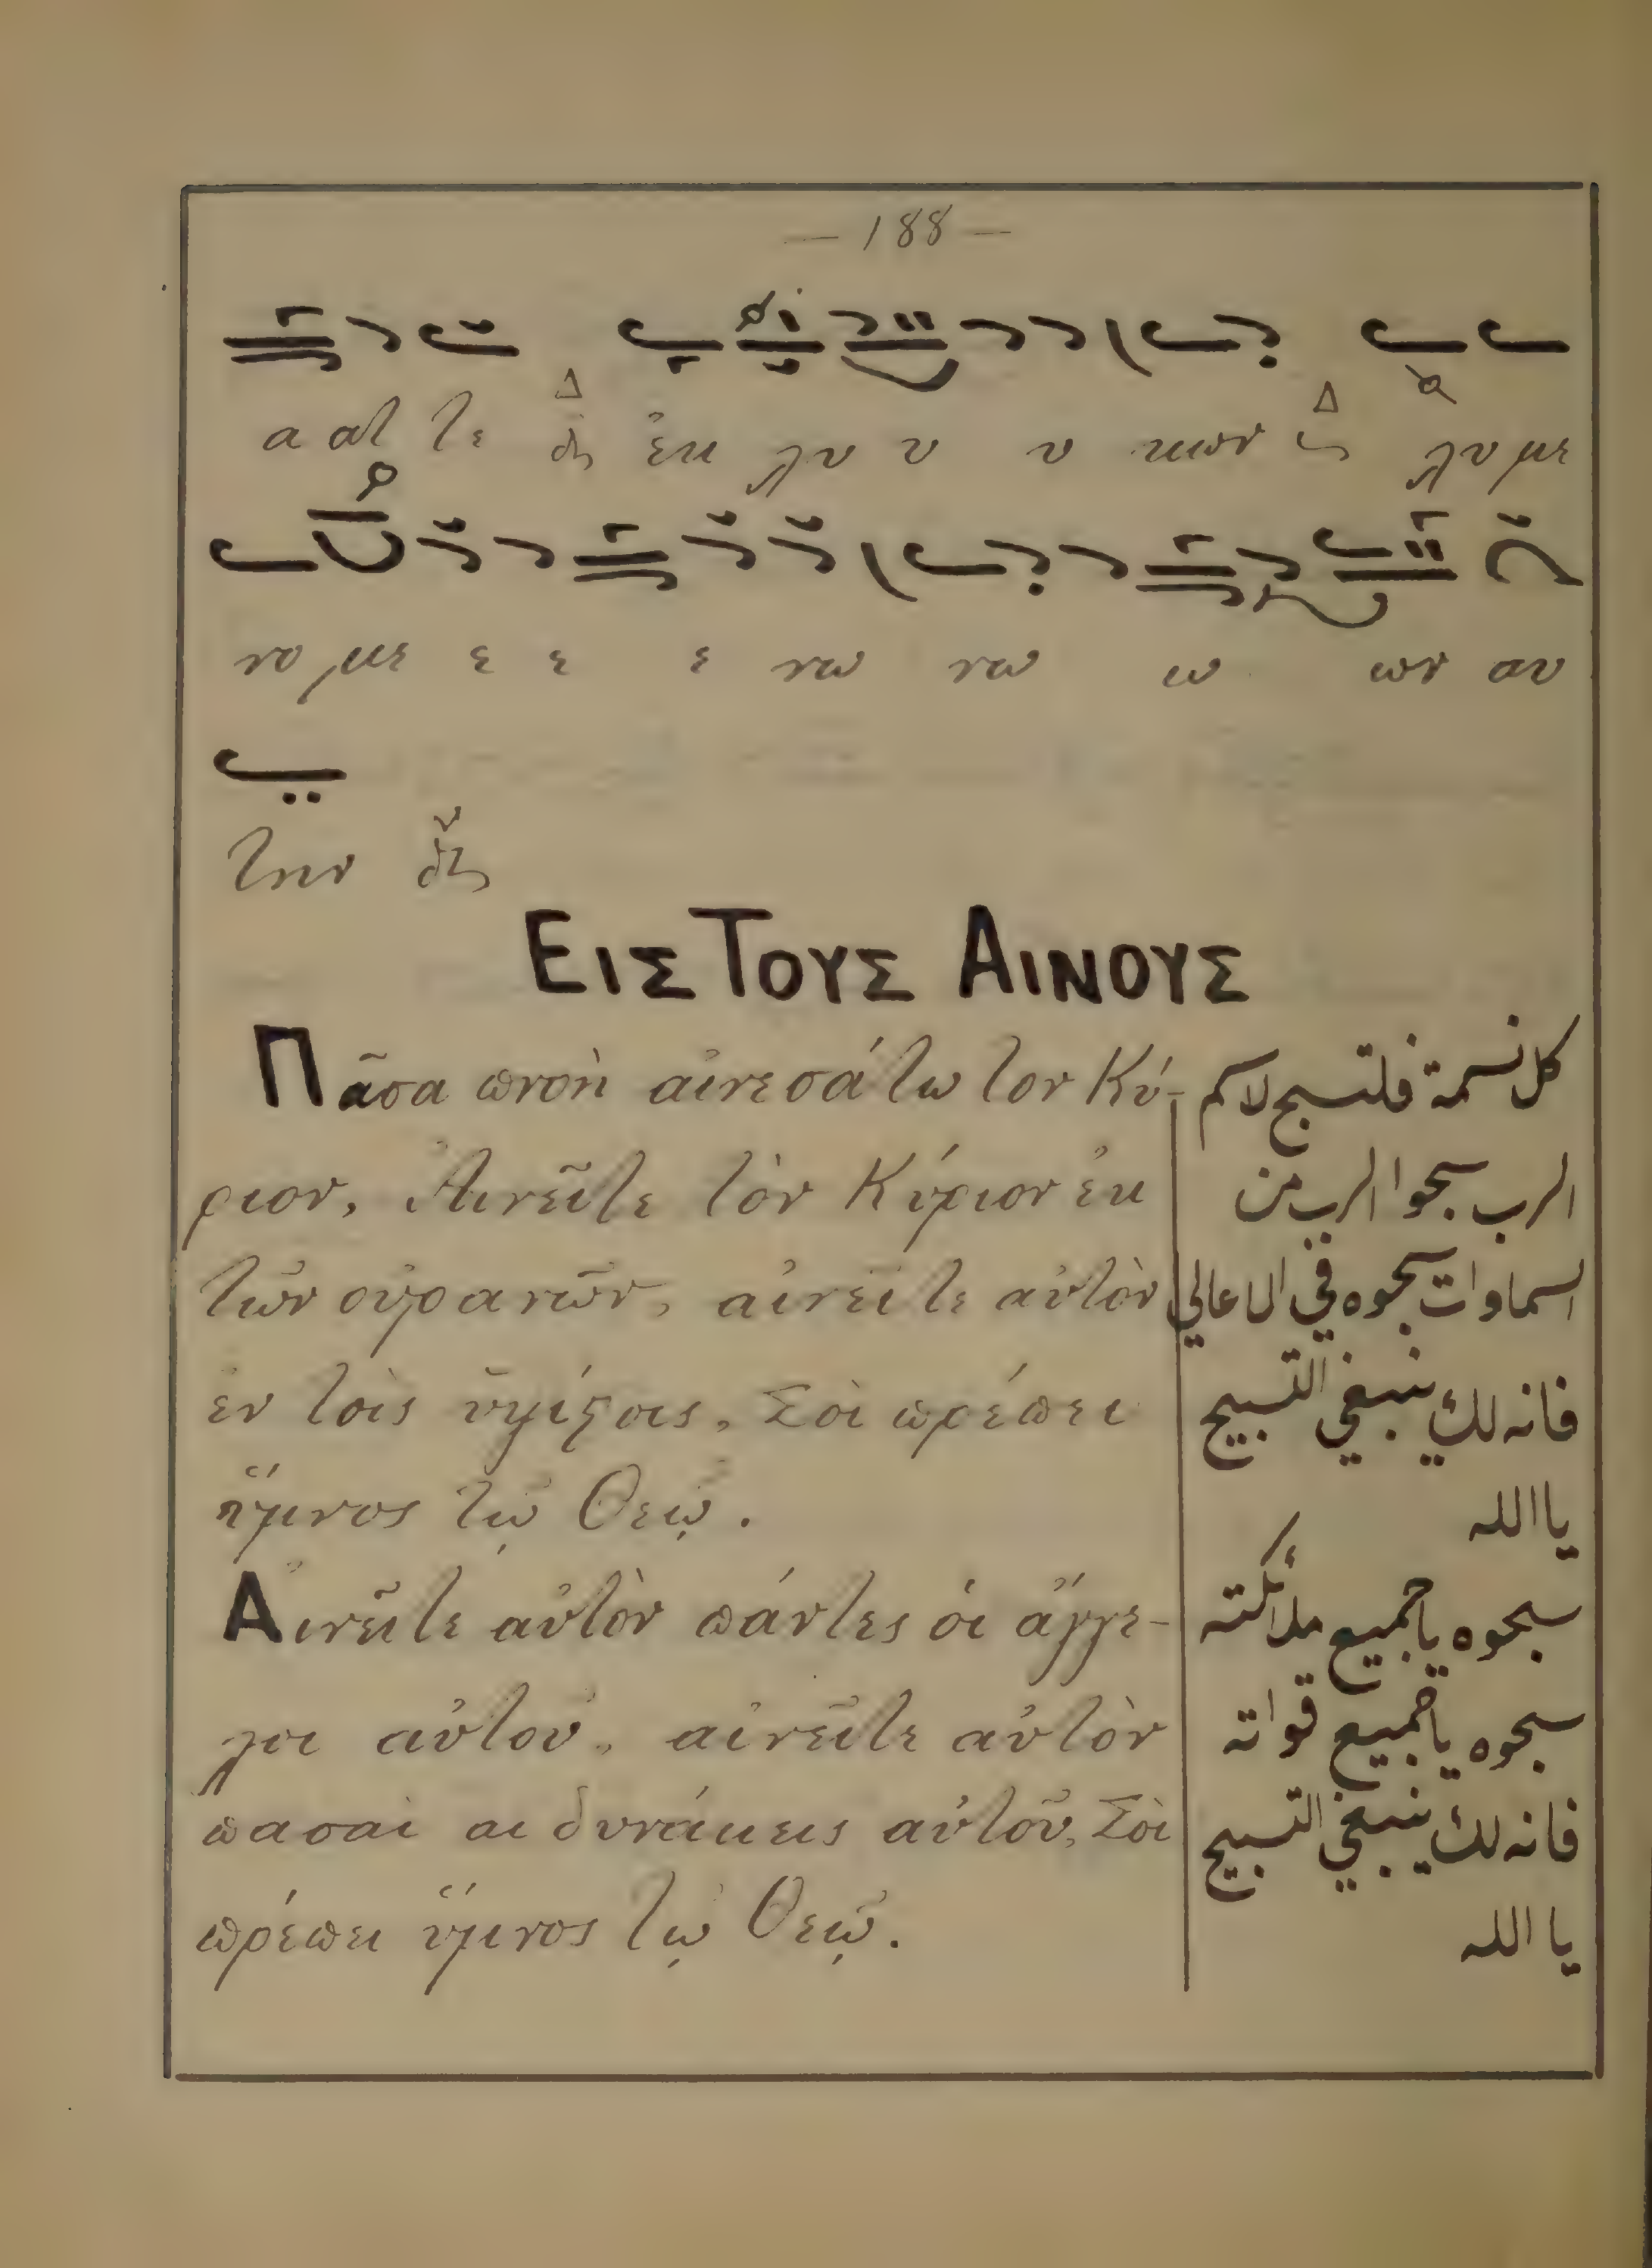 — 188 —
α ατ τε ἐκ λυ υ υ κων λυ με
νο με ε ε ε νω νω ω ων αυ
την
ΕΙΣ ΤΟΥΣ ΑΙΝΟΥΣ
Πᾶσα πνοὴ αἰνεσάτω τον Κύ-
ριον, Αινεῖτε τὸν Κύριον ἐκ
τῶν οὐρανῶν, αἰνεῖτε αὐτὸν
ἐν τοῖς ὑψίϛοις, Σοὶ πρέπει
ὕμνος τῷ Θεῷ.
Αινεῖτε αὐτὸν πάντες οἱ ἄγγε-
λοι αὐτοῦ, αἰνεῖτε αὐτὸν
πασαὶ αι δυνάμεις αὐτοῦ, Σοὶ
πρέπει ὕμνος τῷ Θεῷ.
كل نسمة فلتسبح لاسم
الرب سبحوا الرب من
السماوات سبحوه في الاعالي
فانه لك ينبغي التسبيح
يا الله
سبحوه يا جميع ملائكته
سبحوه يا جميع قواته
فانه لك ينبغي التسبيح
يا الله